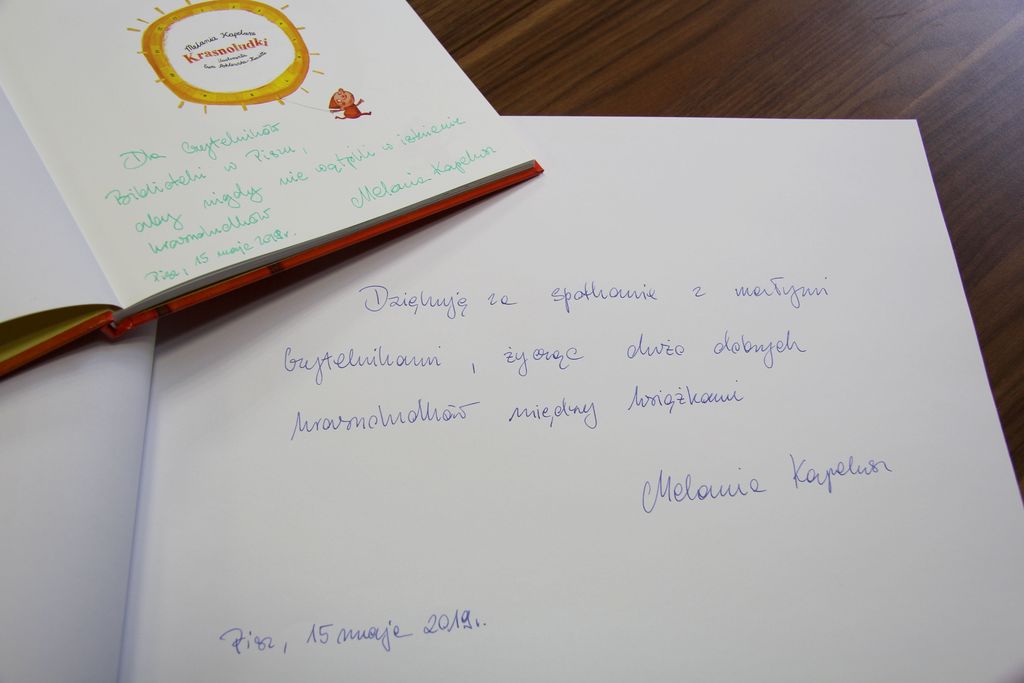 Melania Kapelusz
Krasnoludki
ilustrowała
Dla Czytelników
Biblioteki w Piszu,
aby nigdy nie wątpili w istnienie
krasnoludków
Melania Kapelusz
Pisz, 15 maja 2019r.
Dziękuję za spotkanie z małymi
Czytelnikami, życząc dużo dobrych
krasnoludków między książkami
Melania Kapelusz
Pisz, 15 maja 2019r.